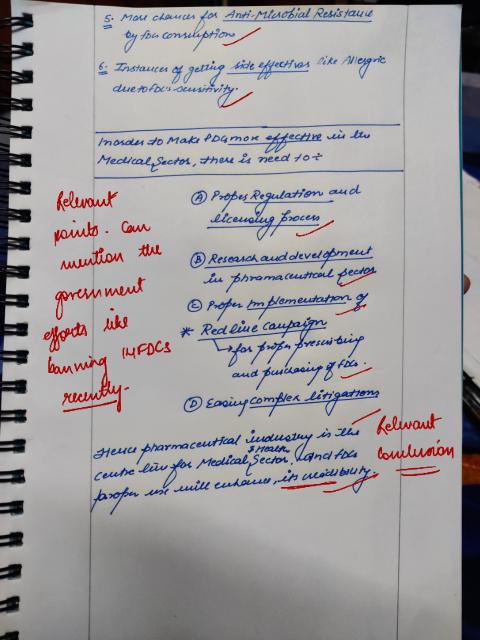 5. More chances for Anti-Microbial Resistance
by FDCs consumption
6. Instances of getting side effectives like Allergric
due to FDCs sensitivity.
Inorder to Make FDCs more effective in the
Medical Sector, there is need to÷
Relevant
points. Can
mention the
government
efforts like
banning 14 FDCs
recently.
(A) Proper Regulation and
licensing process
(B) Research and development
in phramaceutical sector
(C) Proper Implementation of
* Red line Campaign
↳ for proper prescribing
and purchasing of FDCs.
(D) Easing complex litigations
Hence pharmaceutical industry is the
centre line for Medical & Health Sector, and FDCs
proper use will enhance, its credibility.
Relevant
conclusion